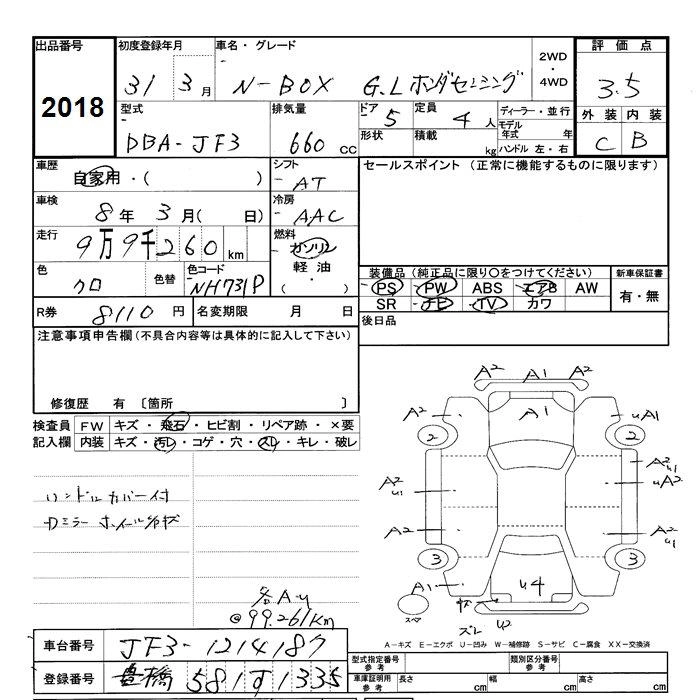 出品番号 初度登録年月 車名・グレード 2WD・4WD 評価点
2018 31 3月 N-BOX G.Lホンダセンシング 3.5
型式 排気量 ドア 5 定員 4人 ディーラー・並行 外装 内装
DBA-JF3 660cc 形状 積載 kg モデル年式 年 ハンドル 左・右 C B
車歴 自家用・( ) シフト AT セールスポイント (正常に機能するものに限ります)
車検 8年 3月( 日) 冷房 AAC
走行 9万9千260km 燃料 ガソリン
軽油
( ・ )
色 クロ 色替 色コード NH731P
装備品(純正品に限り○をつけてください) 新車保証書
PS PW ABS エアB AW 有・無
SR ナビ TV カワ
R券 8110円 名変期限 月 日 後日品
注意事項申告欄(不具合内容等は具体的に記入して下さい)
修復歴 有 〔箇所 〕
検査員 FW キズ・飛石・ヒビ割・リペア跡・×要
記入欄 内装 キズ・汚レ・コゲ・穴・スレ・キレ・破レ
ハンドルカバー付
各AU
@99.261km
A2 A1
A2 A1 uA1
2 2
A2 A2
u1 uA2
A2 A2
u1
3 3
A1 u4
スペア ズレ U2
A-キズ E-エクボ U-凹み W-補修跡 S-サビ C-腐食 XX-交換済
車台番号 JF3-1214187
登録番号 豊橋 581す1335
型式指定番号 参考 類別区分番号 参考
車庫証明用 参考 長さ cm 幅 cm 高さ cm